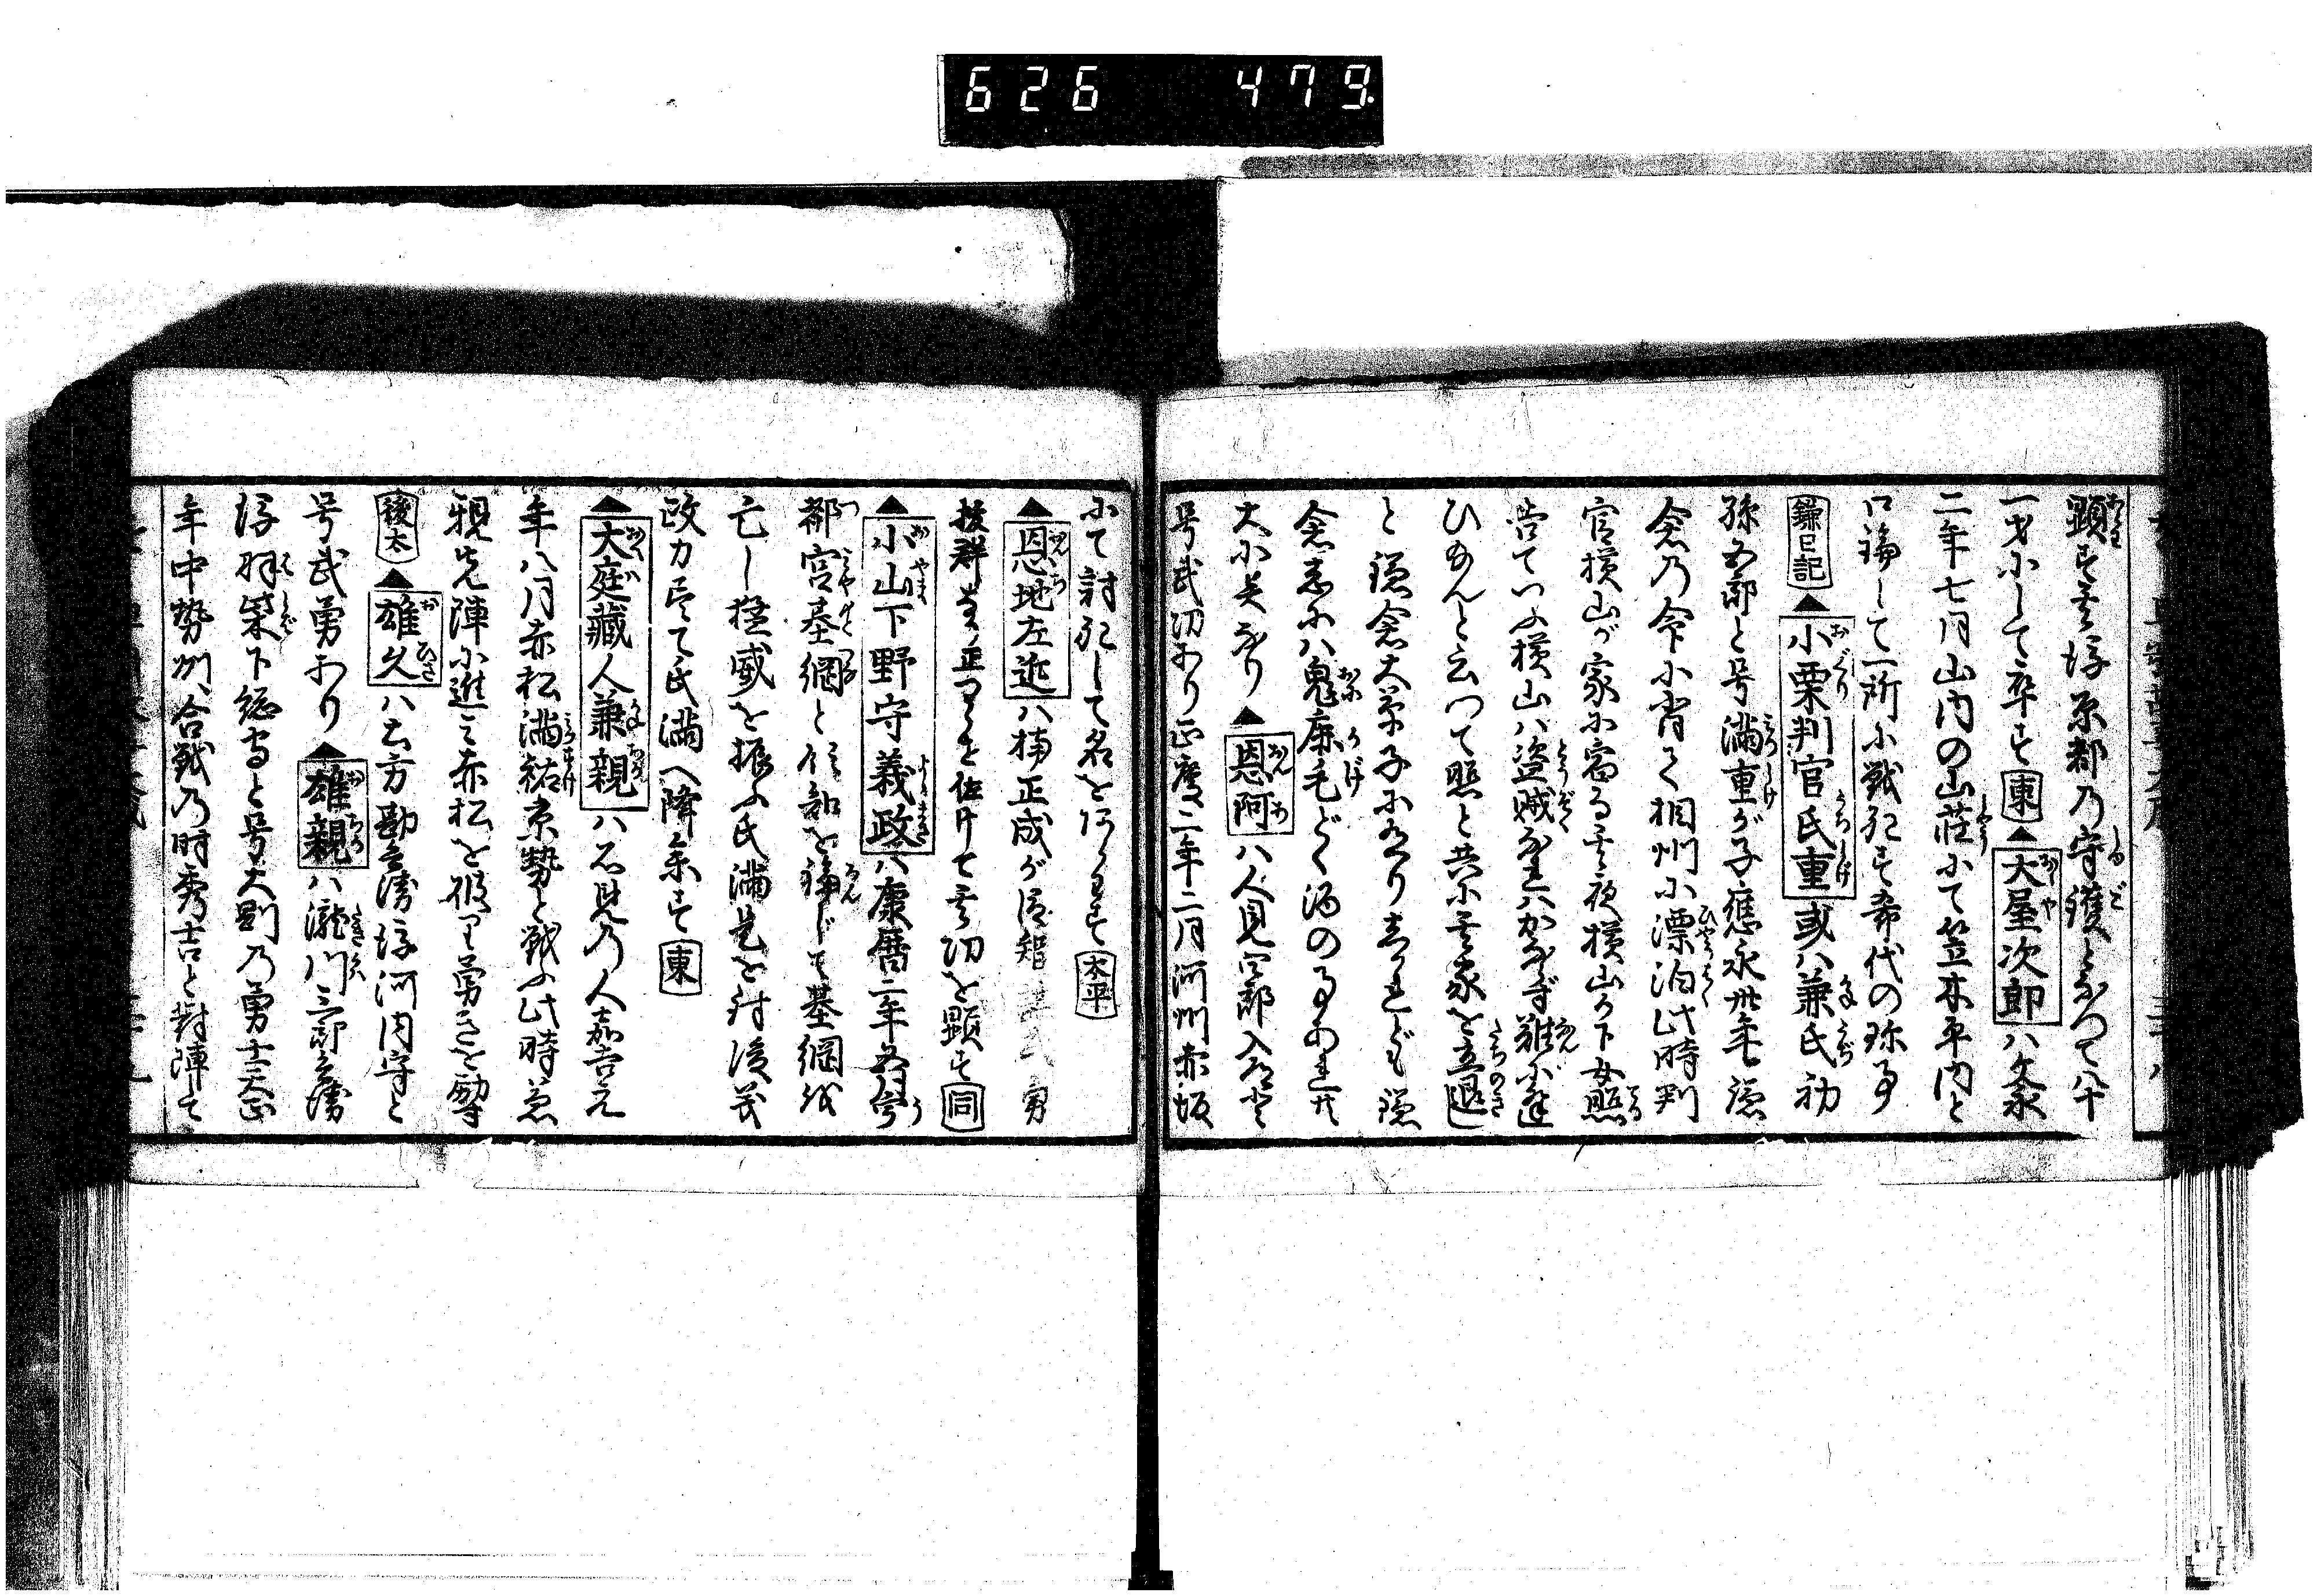 626 479
顕す其後京都の守護となつて八十
一才にして卒す 東 ▲大屋次郎ハ文永
二年七月山内の山荘にて笠木平内と
口論して一所に戦死す希代の珍事
鎌日記 ▲小栗判官氏重或ハ兼氏初
孫五郎と号満重が子應永卅年鎌
倉の命に背て相州に漂泊此時判
官横山が家に宿る其夜横山が下女照
告ていふ横山ハ盗賊なれハかならず難に逢
ひなんと云つて照と共に其家を立退
と鎌倉大草子に見へり されども鎌
倉志にハ鬼鹿毛どく酒の事あれ共
大小異なり ▲恩阿ハ人見四郎入道と
号武功あり正慶二年二月河州赤坂
にて討死して名をあらわす 太平
▲恩地左近ハ楠正成が 智 勇
抜群 正 を佐けて其功を顕す 同
▲小山下野守義政ハ康暦二年五月宇
都宮基綱と 論じて基綱
亡し猛威を振ふ氏満是を討 義
政力尽て氏満へ降参す 東
▲大庭蔵人兼親ハ石見の人嘉吉元
年八月赤松満祐京勢と戦ふ此時兼
親先陣に進ミ赤松を破り勇名を
後太 ▲雄久ハ土方勘兵衛後河内守と
号武勇あり ▲雄親ハ瀧川三郎兵衛
後羽柴下総守と号大剛の勇士天正
年中勢州合戦の時秀吉と對陣て